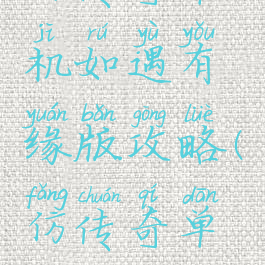 jī rú yù yǒu
机如遇有
yuán bǎn gōng lüè
缘版攻略(
fǎng chuán qí dān
仿传奇单